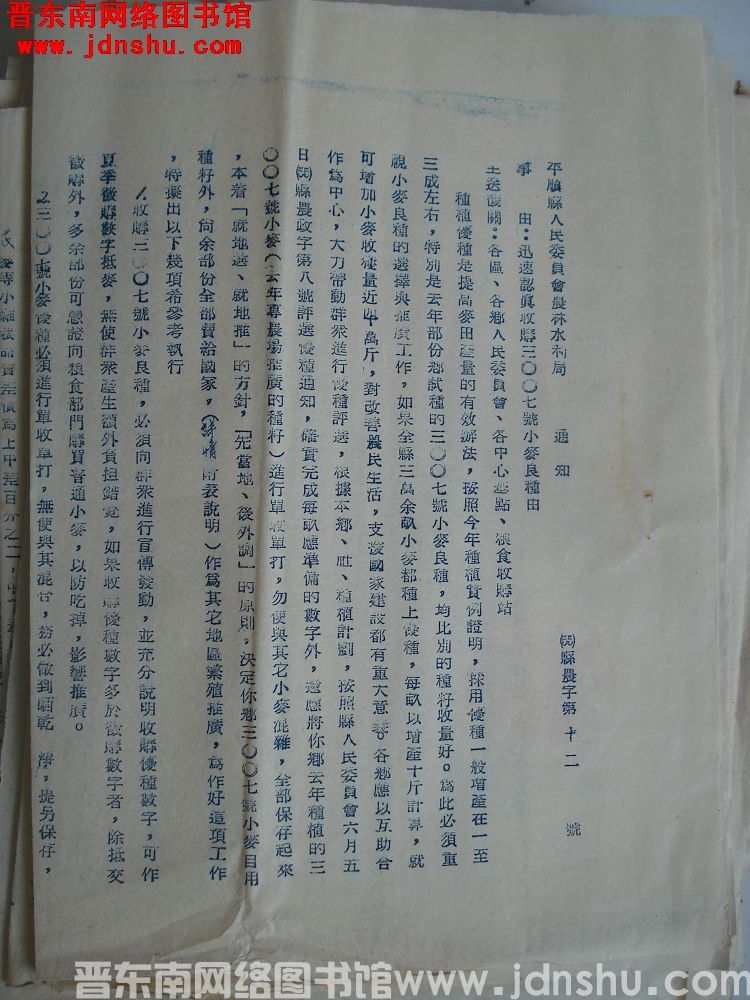 晋东南网络图书馆
www.jdnshu.com
平順縣人民委員會農林水利局 通知
㊄縣農字第十二號
事由：迅速認眞收購三〇〇七號小麥良種由
主送機關：各區、各鄉人民委員會、各中心基點、粮食收購站
種植優種是提高麥田產量的有效辦法，按照今年種植實例證明，採用優種一般增產在一至
三成左右，特別是去年部份鄉試種的三〇〇七號小麥良種，均比別的種籽收量好。爲此必須重
視小麥良種的選擇與推廣工作，如果全縣三萬余畝小麥都種上優種，每畝以增產十斤計算，就
可增加小麥收穫量近卅萬斤，對改善農民生活，支援國家建設都有重大意義。各鄉應以互助合
作爲中心，大力帶動群衆進行優種評選，根據本鄉、社、種植計劃，按照縣人民委員會六月五
日縣農政字第八號評選優種通知，確實完成每畝應準備的數字外，還應將你鄉去年種植的三
〇〇七號小麥（去年專農場推廣的種籽）進行單收單打，勿使與其它小麥混雜，全部保存起來
，本着「就地選、就地推」的方針，「先當地、後外調」的原則，決定你鄉三〇〇七號小麥自用
種籽外，尙余部份全部賣給國家，（詳情附表說明）作爲其它地區繁殖推廣，爲作好這項工作
，特擬出以下幾項希參考執行
1.收購三〇〇七號小麥良種，必須向群衆進行宣傳發動，並充分說明收購優種數字，可作
夏季徵購數字抵麥，無使群衆產生額外負担錯覺，如果收購優種數字多於徵購數字者，除抵交
徵購外，多余部份可憑證向粮食部門購買普通小麥，以防吃掉，影響推廣。
2.三〇〇七號小麥優種必須進行單收單打，無使與其混合，務必做到晒乾 淨，提另保存，
晋东南网络图书馆www.jdnshu.com